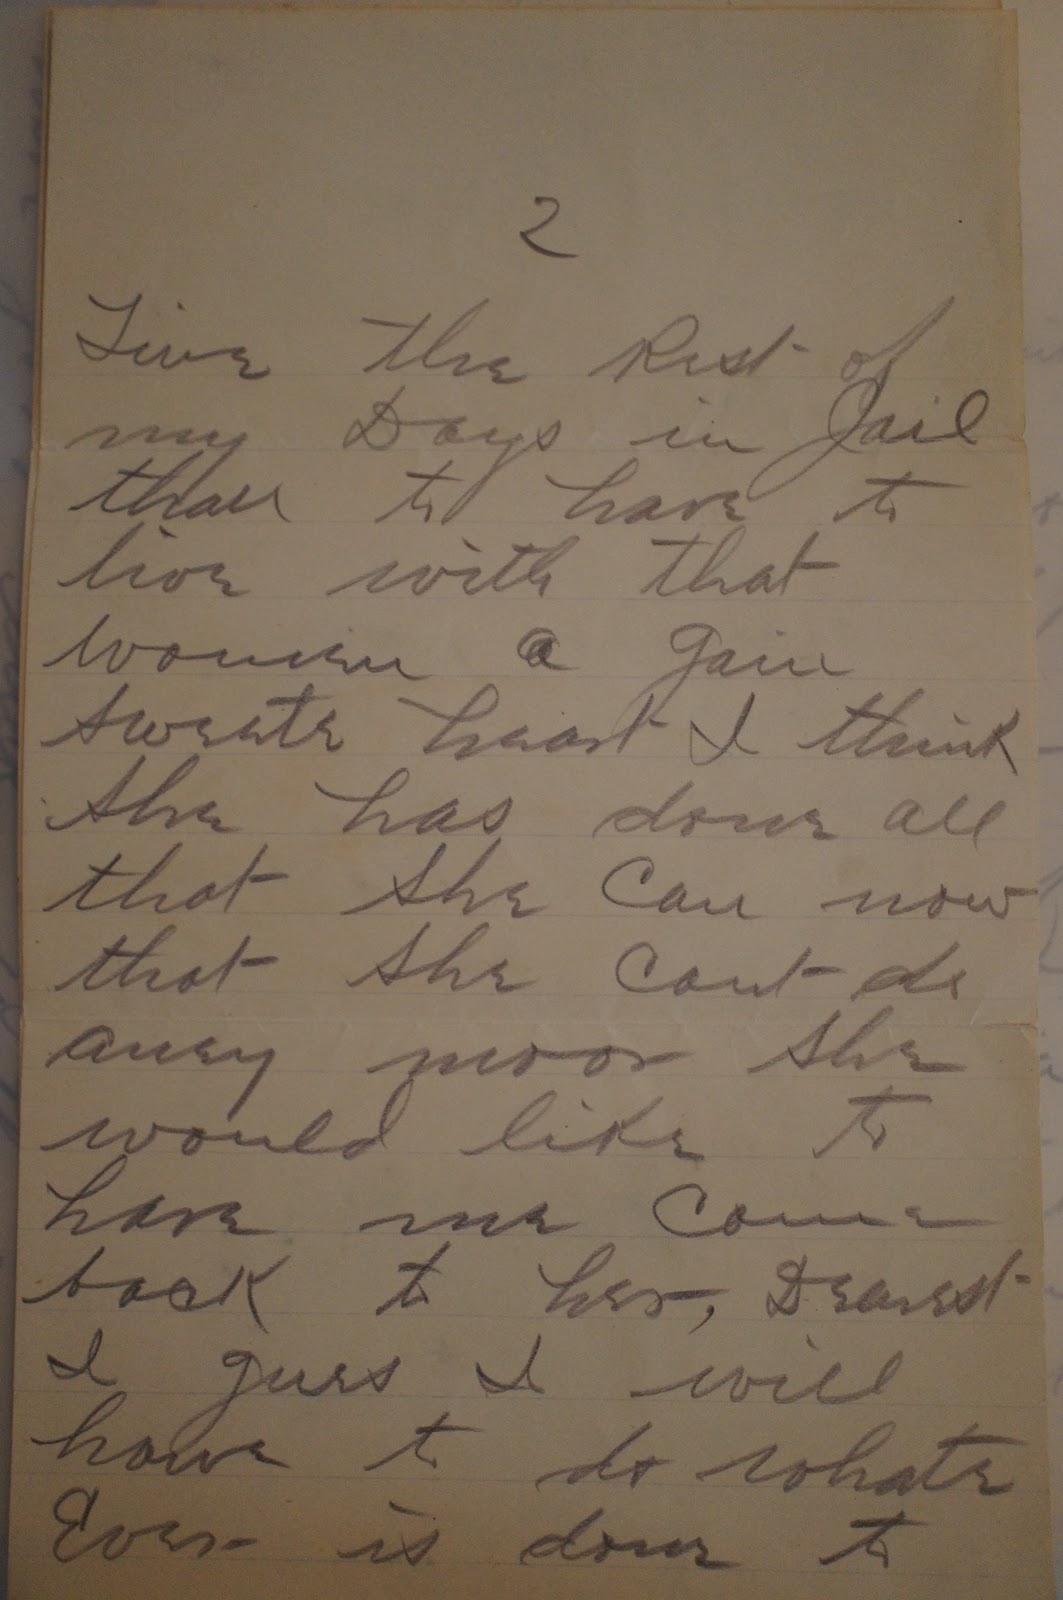 2
Live the Rest of
my Days in Jail
than to have to
live with that
women a gain
sweete heart I think
she has done all
that she can now
that she cant do
aney moor she
would like to
have me come
back to her, Dearest
I gues I will
have to do whate
Ever is done to